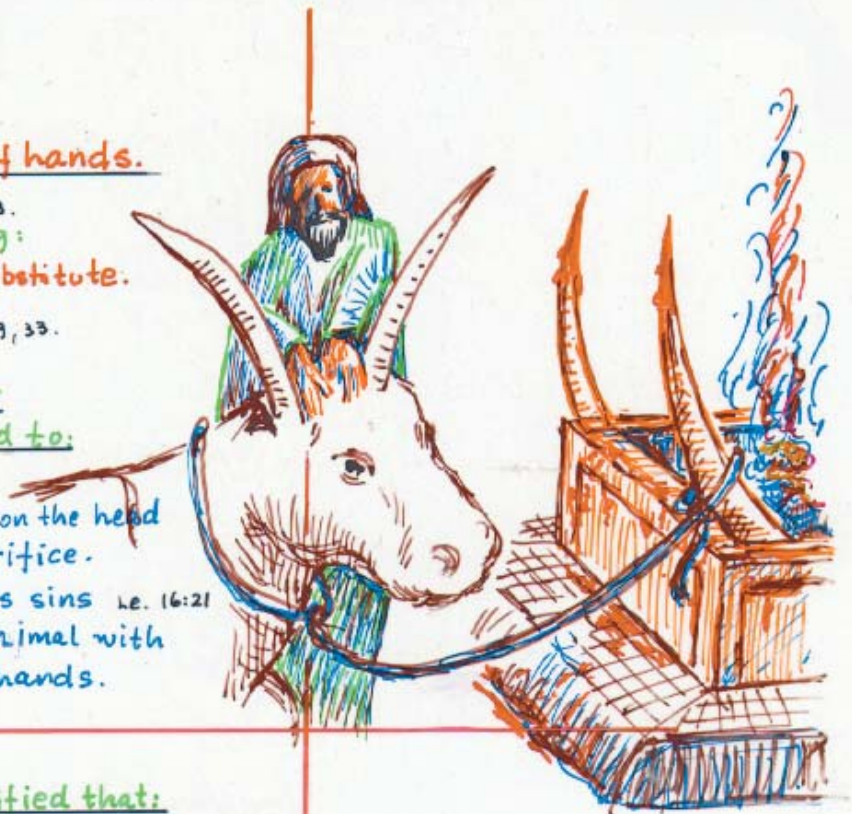 f hands.
g:
bstitute.
9, 33.
d to:
on the head
rifice.
s sins Le. 16:21
nimal with
hands.
ified that: